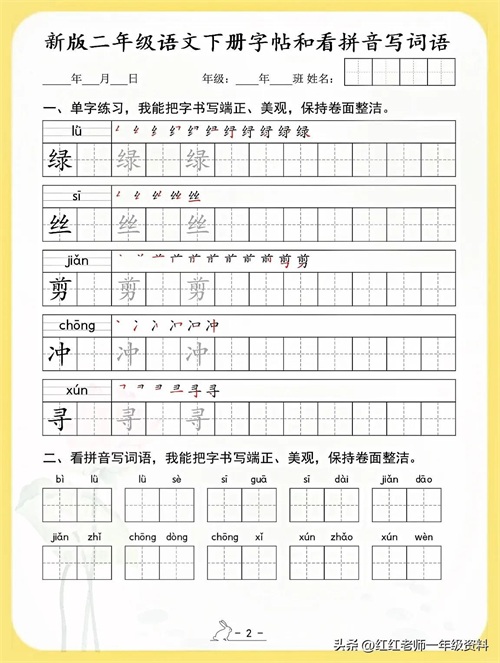 新版二年级语文下册字帖和看拼音写词语
____年___月___日 年级：___年___班 姓名：
一、单字练习，我能把字书写端正、美观，保持卷面整洁。
lǜ
绿 绿 绿
sī
丝 丝 丝
jiǎn
剪 剪 剪
chōng
冲 冲 冲
xún
寻 寻 寻
二、看拼音写词语，我能把字书写端正、美观，保持卷面整洁。
bì lǜ lǜ sè sī guā sī dài jiǎn dāo
jiǎn zhǐ chōng dòng chōng xǐ xún zhǎo xún wèn
- 2 -
头条 @红红老师一年级资料